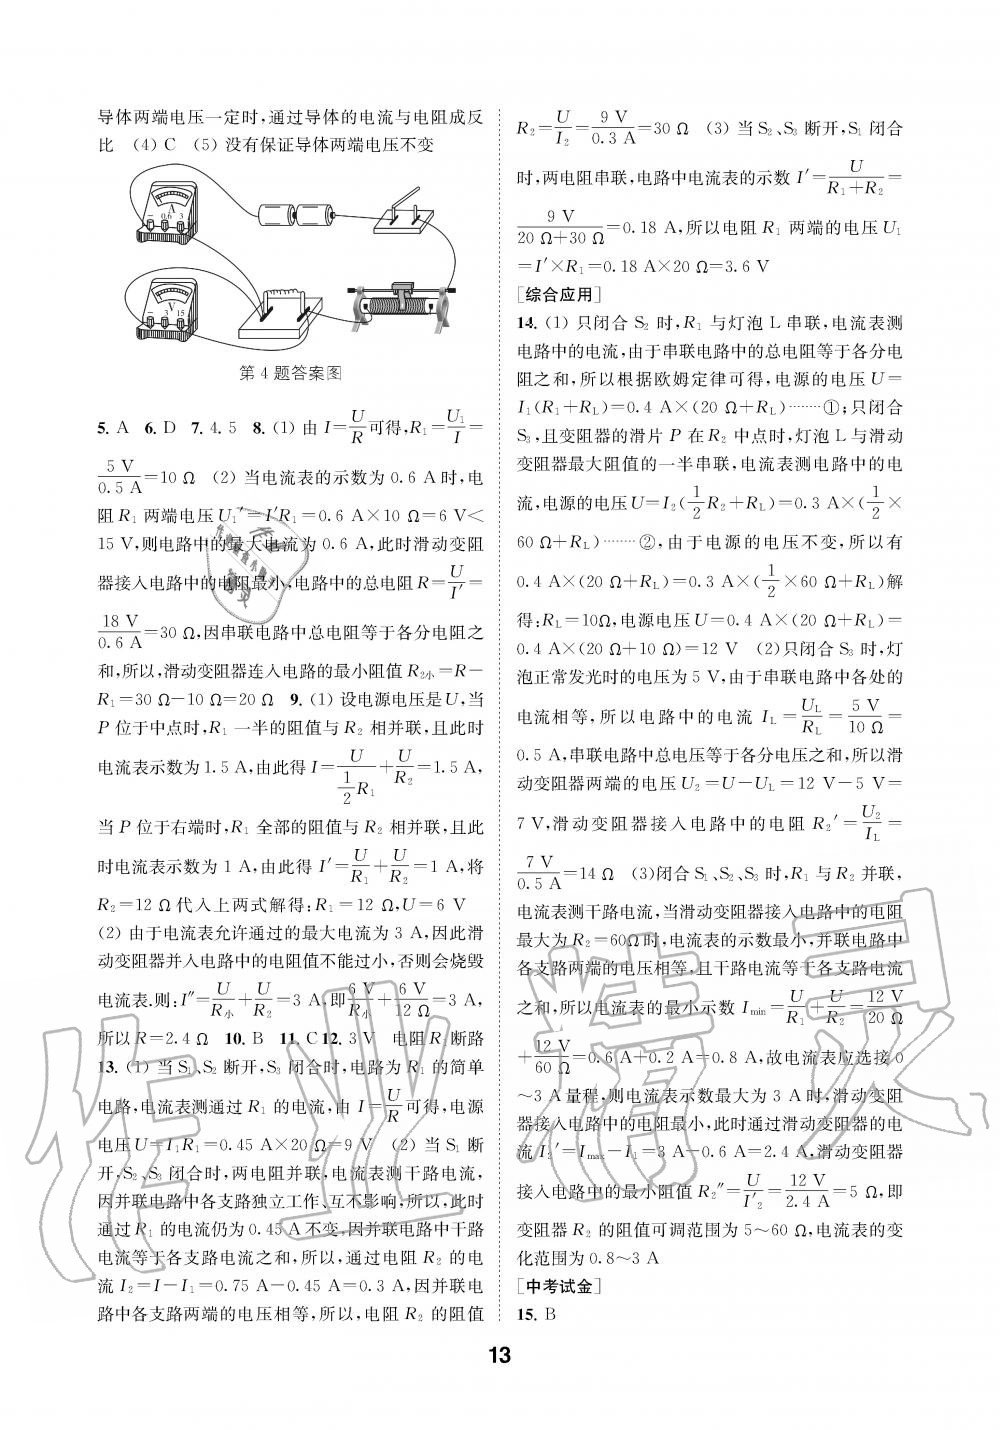 导体两端电压一定时,通过导体的电流与电阻成反
比 (4) C (5) 没有保证导体两端电压不变
A
- 0.6 3
V
- 3 15
第 4 题答案图
5. A 6. D 7. 4.5 8. (1) 由 I=U/R可得,R₁=U₁/I=
5 V/0.5 A=10 Ω (2) 当电流表的示数为 0.6 A 时,电
阻 R₁ 两端电压 U₁′=I′R₁=0.6 A×10 Ω=6 V<
15 V,则电路中的最大电流为 0.6 A,此时滑动变阻
器接入电路中的电阻最小,电路中的总电阻 R=U/I′=
18 V/0.6 A=30 Ω,因串联电路中总电阻等于各分电阻之
和,所以,滑动变阻器连入电路的最小阻值 R₂小=R-
R₁=30 Ω-10 Ω=20 Ω 9. (1) 设电源电压是 U,当
P 位于中点时,R₁ 一半的阻值与 R₂ 相并联,且此时
电流表示数为 1.5 A,由此得 I=U/(1/2 R₁)+U/R₂=1.5 A,
当 P 位于右端时,R₁ 全部的阻值与 R₂ 相并联,且此
时电流表示数为 1 A,由此得 I′=U/R₁+U/R₂=1 A,将
R₂=12 Ω 代入上两式解得:R₁=12 Ω,U=6 V
(2) 由于电流表允许通过的最大电流为 3 A,因此滑
动变阻器并入电路中的电阻值不能过小,否则会烧毁
电流表.则:I″=U/R小+U/R₂=3 A,即6 V/R小+6 V/12 Ω=3 A,
所以 R=2.4 Ω 10. B 11. C 12. 3 V 电阻 R 断路
13. (1) 当 S₁、S₂ 断开,S₃ 闭合时,电路为 R₁ 的简单
电路,电流表测通过 R₁ 的电流,由 I=U/R可得,电源
电压 U=I₁R₁=0.45 A×20 Ω=9 V (2) 当 S₁ 断
开,S₂、S₃ 闭合时,两电阻并联,电流表测干路电流,
因并联电路中各支路独立工作、互不影响,所以,此时
通过 R₁ 的电流仍为 0.45 A 不变,因并联电路中干路
电流等于各支路电流之和,所以,通过电阻 R₂ 的电
流 I₂=I-I₁=0.75 A-0.45 A=0.3 A,因并联电
路中各支路两端的电压相等,所以,电阻 R₂ 的阻值
R₂=U/I₂=9 V/0.3 A=30 Ω (3) 当 S₂、S₃ 断开,S₁ 闭合
时,两电阻串联,电路中电流表的示数 I′=U/(R₁+R₂)=
9 V/(20 Ω+30 Ω)=0.18 A,所以电阻 R₁ 两端的电压 U₁
=I′×R₁=0.18 A×20 Ω=3.6 V
[综合应用]
14. (1) 只闭合 S₂ 时,R₁ 与灯泡 L 串联,电流表测
电路中的电流,由于串联电路中的总电阻等于各分电
阻之和,所以根据欧姆定律可得,电源的电压 U=
I₁(R₁+RL)=0.4 A×(20 Ω+RL)……①;只闭合
S₃,且变阻器的滑片 P 在 R₂ 中点时,灯泡 L 与滑动
变阻器最大阻值的一半串联,电流表测电路中的电
流,电源的电压 U=I₂(1/2 R₂+RL)=0.3 A×(1/2×
60 Ω+RL)……②,由于电源的电压不变,所以有
0.4 A×(20 Ω+RL)=0.3 A×(1/2×60 Ω+RL)解
得:RL=10Ω,电源电压 U=0.4 A×(20 Ω+RL)=
0.4 A×(20 Ω+10 Ω)=12 V (2)只闭合 S₃ 时,灯
泡正常发光时的电压为 5 V,由于串联电路中各处的
电流相等,所以电路中的电流 IL=UL/RL=5 V/10 Ω=
0.5 A,串联电路中总电压等于各分电压之和,所以滑
动变阻器两端的电压 U₂=U-UL=12 V-5 V=
7 V,滑动变阻器接入电路中的电阻 R₂′=U₂/IL=
7 V/0.5 A=14 Ω (3)闭合 S₁、S₂、S₃ 时,R₁ 与 R₂ 并联,
电流表测干路电流,当滑动变阻器接入电路中的电阻
最大为 R₂=60Ω时,电流表的示数最小,并联电路中
各支路两端的电压相等,且干路电流等于各支路电流
之和,所以电流表的最小示数 Imin=U/R₁+U/R₂=12 V/20 Ω
+12 V/60 Ω=0.6 A+0.2 A=0.8 A,故电流表应选接 0
~3 A 量程,则电流表示数最大为 3 A 时,滑动变阻
器接入电路中的电阻最小,此时通过滑动变阻器的电
流 I₂′=Imax-I₁=3 A-0.6 A=2.4 A,滑动变阻器
接入电路中的最小阻值 R₂″=U/I′₂=12 V/2.4 A=5 Ω,即
变阻器 R₂ 的阻值可调范围为 5~60 Ω,电流表的变
化范围为 0.8~3 A
[中考试金]
15. B
13
作业精灵